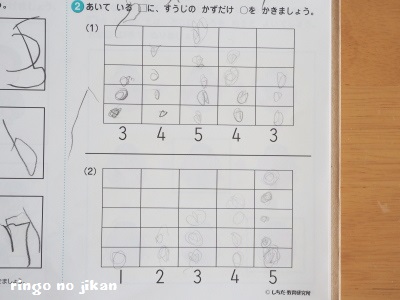 2 あいて いる □に、すうじの かずだけ ○を かきましょう。
(1)
3 4 5 4 3
(2)
1 2 3 4 5
ましょう。
ringo no jikan